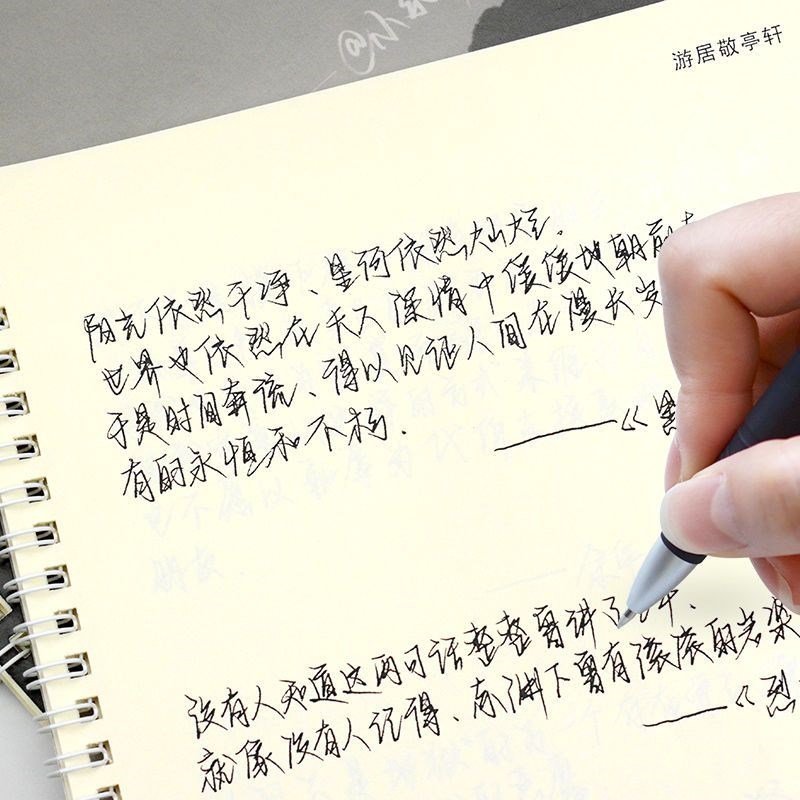 游居敬亭轩
阳光依然干净、星河依然灿烂.
世界也依然在天人深情中缓缓地朝前
于是时间奔流、得以见证人间在漫长岁
有的永恒和不朽. ——《黑
没有人知道这两句话整整 讲了 年、
就像没有人记得、 渊下 有滚滚的岩浆
——《烈